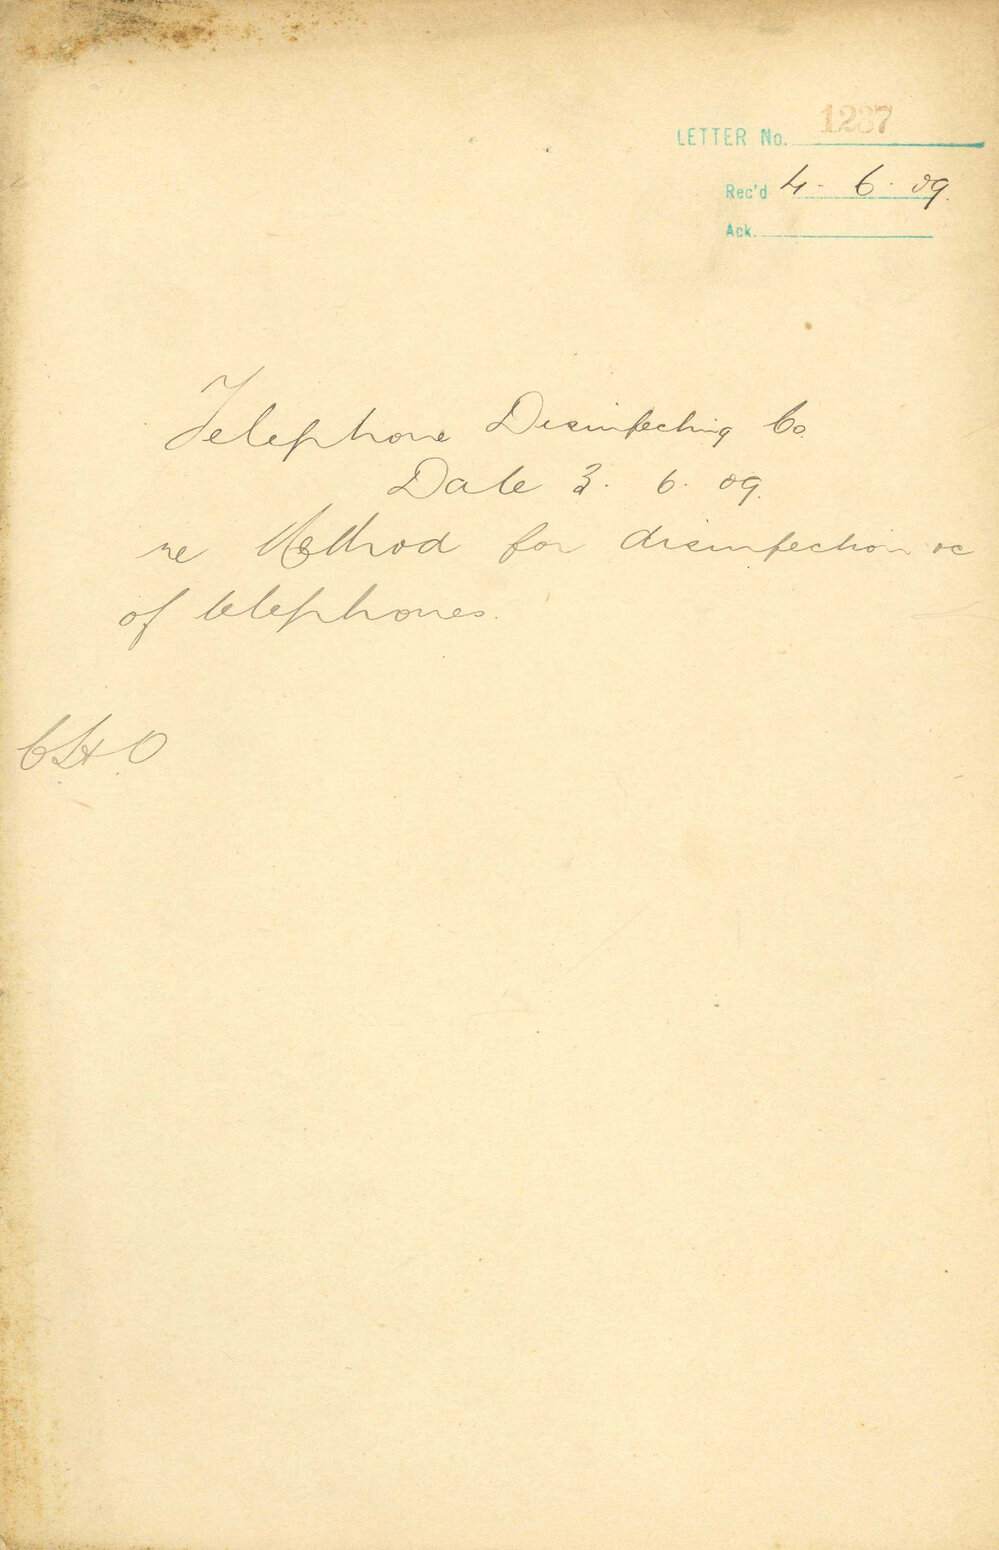 LETTER No. 1237
Rec'd 4. 6. 09.
Ack.
Telephone Disinfecting Co.
Date 3. 6. 09.
re Method for disinfection &c
of telephones.
C H O